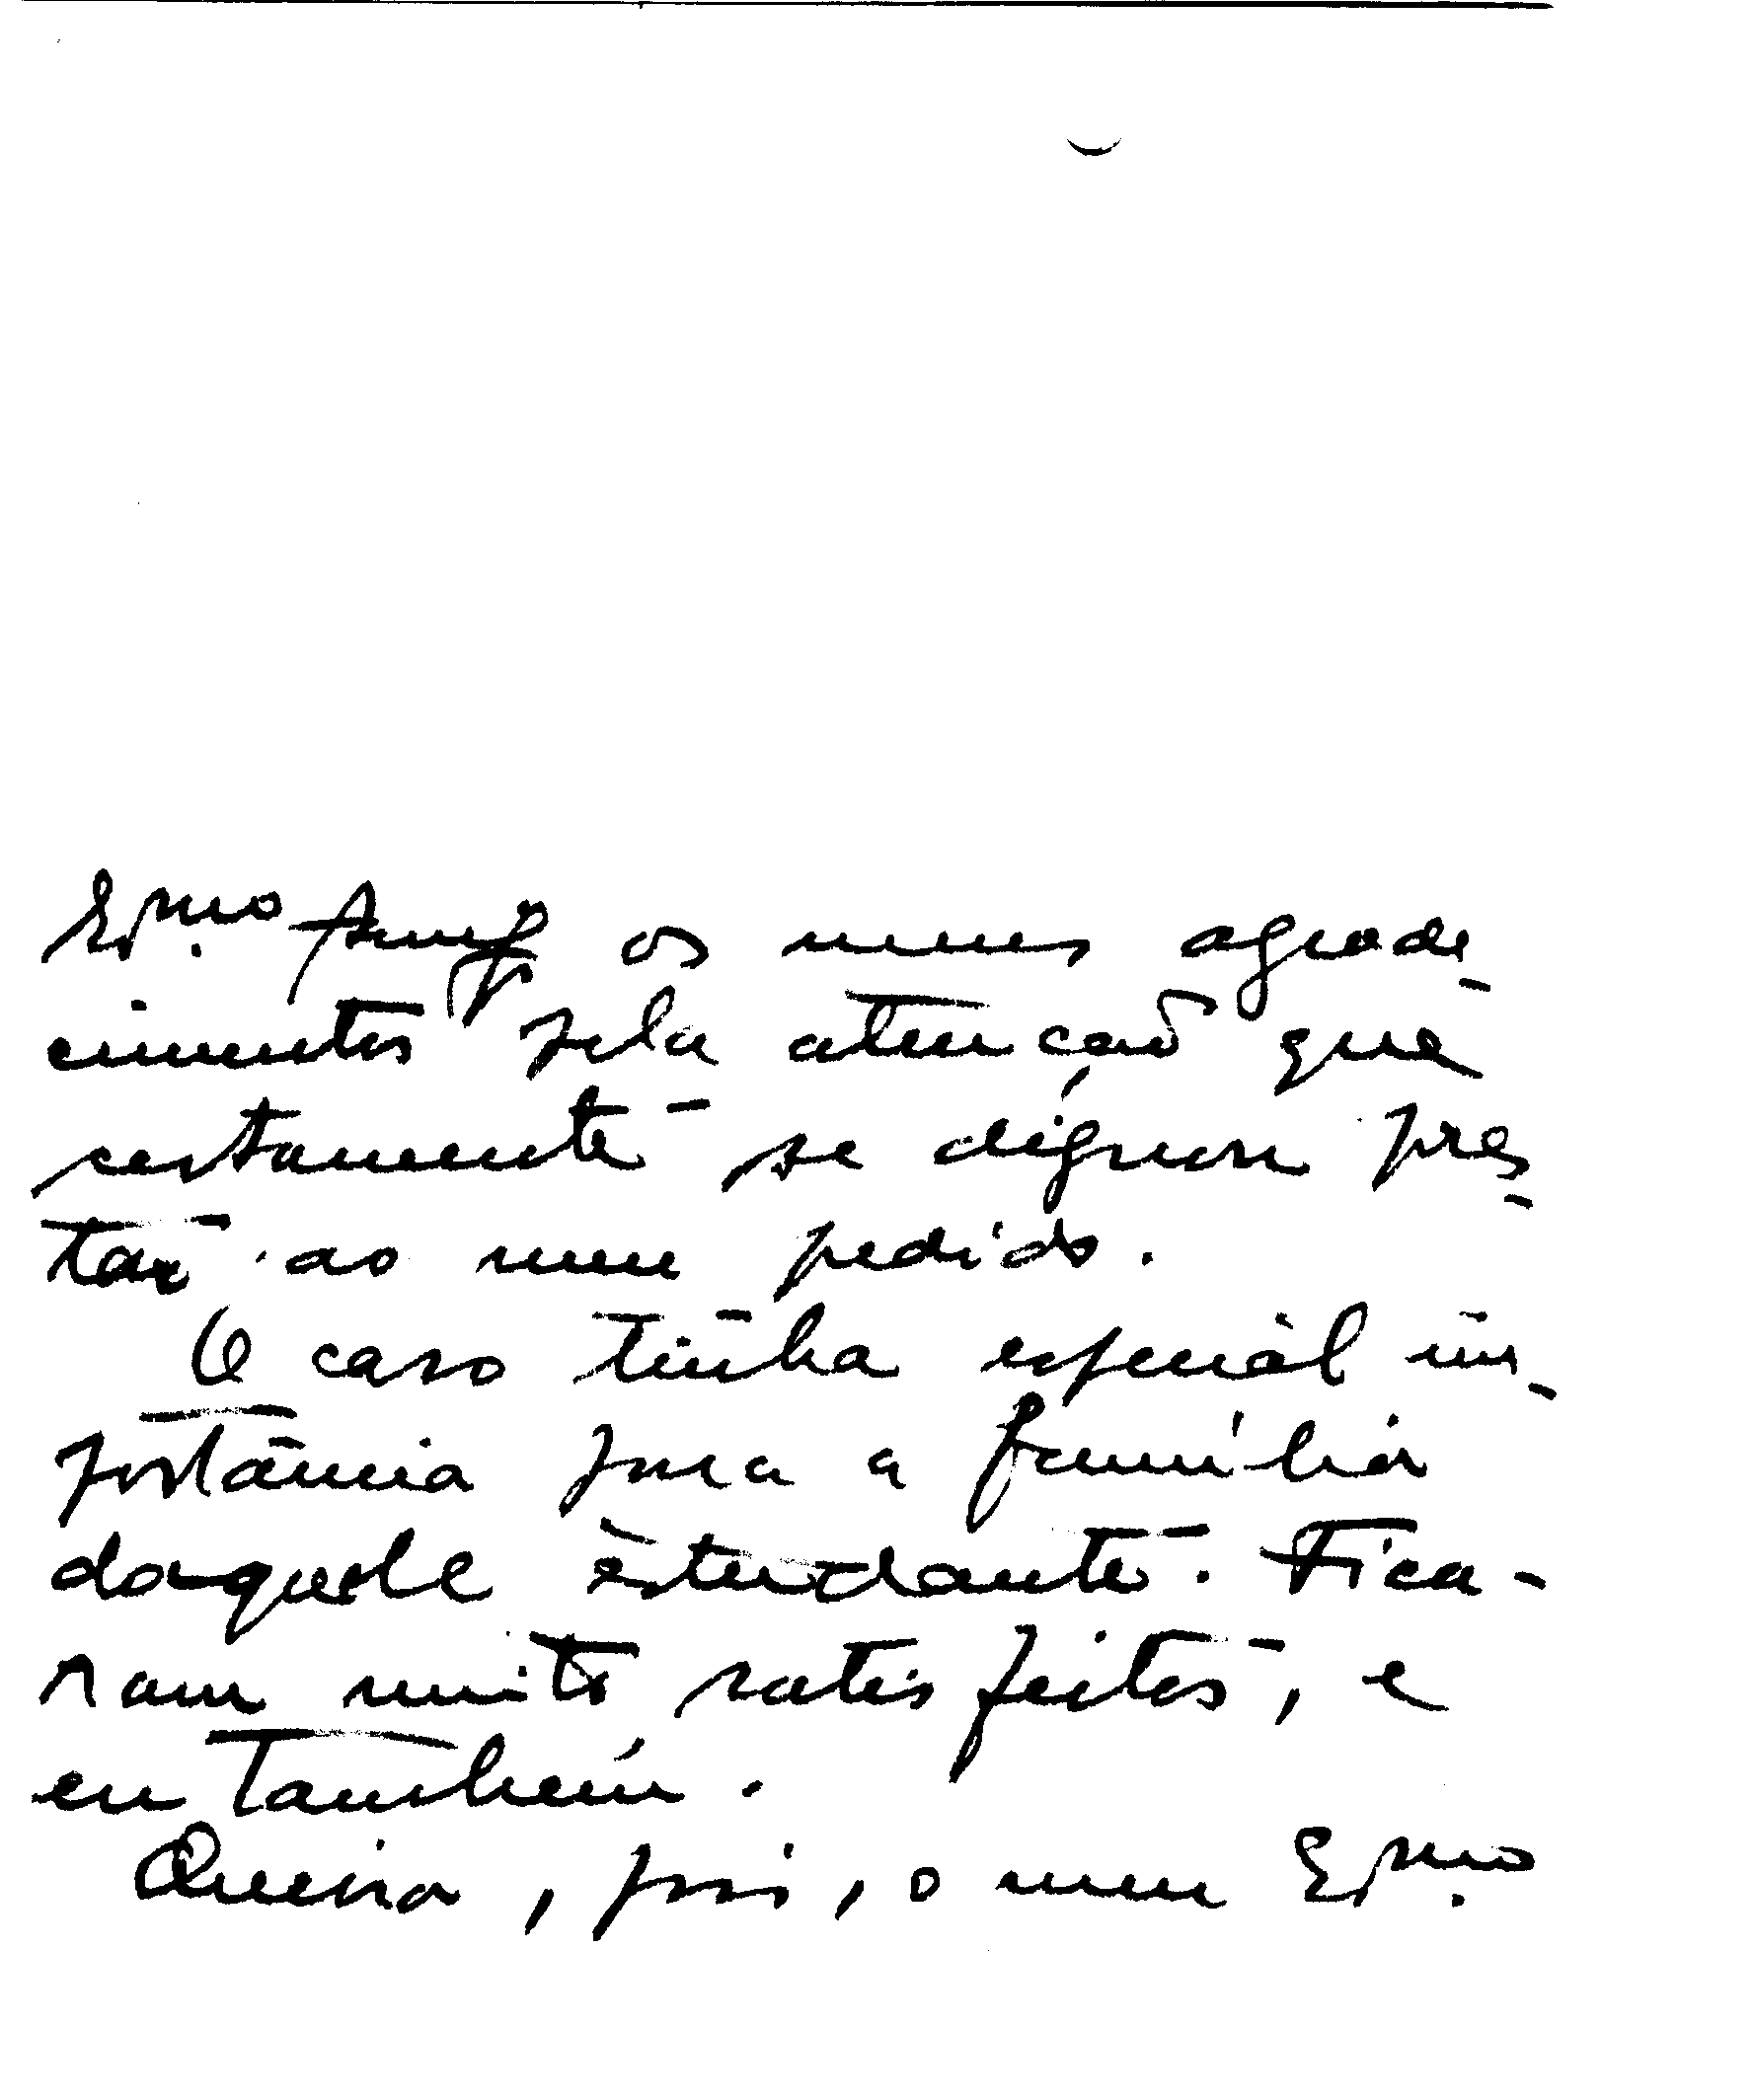 Ex.mo Amigo os meus agrade-
cimentos pela atenção que
certamente se dignou pres-
tar ao meu pedido.
O caso tinha especial im-
portância para a família
daquele estudante. Fica-
ram muito satisfeitos, e
eu também.
Queira, pois, o meu Ex.mo